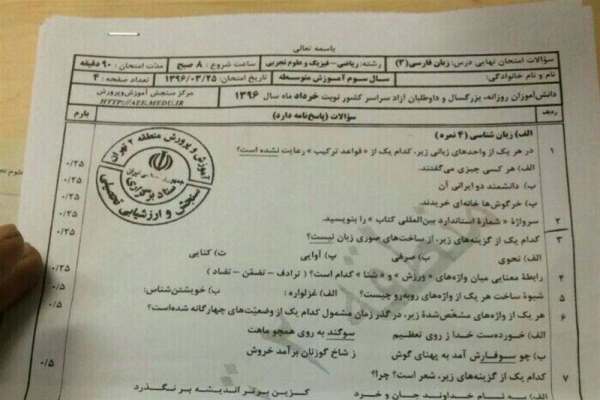 باسمه تعالی
سؤالات امتحان نهایی درس: زبان فارسی (۳) رشته: ریاضی – فیزیک و علوم تجربی ساعت شروع: ۸ صبح مدت امتحان: ۹۰ دقیقه
نام و نام خانوادگی: سال سوم آموزش متوسطه تاریخ امتحان: ۱۳۹۶/۰۳/۲۵ تعداد صفحه: ۴
دانش‌آموزان روزانه، بزرگسال و داوطلبان آزاد سراسر کشور نوبت خرداد ماه سال ۱۳۹۶ مرکز سنجش آموزش‌وپرورش
HTTP://AEE.MEDU.IR
ردیف سؤالات (پاسخ‌نامه دارد) بارم
الف) زبان شناسی (۴ نمره)
۱ در هر یک از واحدهای زبانی زیر، کدام یک از « قواعد ترکیب » رعایت نشده است؟
الف) هر کسی چیزی می‌گفتند. ۰/۲۵
ب) دانشمند دو ایرانی آن ۰/۲۵
پ) خرگوش‌ها خانه‌ای خریدند. ۰/۲۵
۲ سرواژهٔ « شمارهٔ استاندارد بین‌المللی کتاب » را بنویسید. ۰/۲۵
۳ کدام یک از گزینه‌های زیر، از ساخت‌های صوری زبان نیست؟
الف) نحوی ب) صرفی پ) آوایی ت) کنایی ۰/۲۵
۴ رابطهٔ معنایی میان واژه‌های « ورزش » و « شنا » کدام است؟ ( ترادف - تضمّن - تضاد ) ۰/۲۵
۵ شیوهٔ ساخت هر یک از واژه‌های روبه‌رو چیست؟ الف) غزلواره: ب) خویشتن‌شناس: ۰/۵
۶ هر یک از واژه‌های مشخّص‌شدهٔ زیر، در گذر زمان مشمول کدام یک از وضعیّت‌های چهارگانه شده‌است؟
الف) خورده‌ست خدا ز روی تعظیم سوگند به روی همچو ماهت
ب) چو سوفارش آمد به پهنای گوش ز شاخ گوزنان برآمد خروش ۰/۵
۷ کدام یک از گزینه‌های زیر، شعر است؟ چرا؟ ۰/۵
الف) به نام خداوند جان و خرد کزین برتر اندیشه بر نگذرد
آموزش و پرورش منطقه ۲ تهران
ستاد برگزاری
سنجش و ارزشیابی تحصیلی